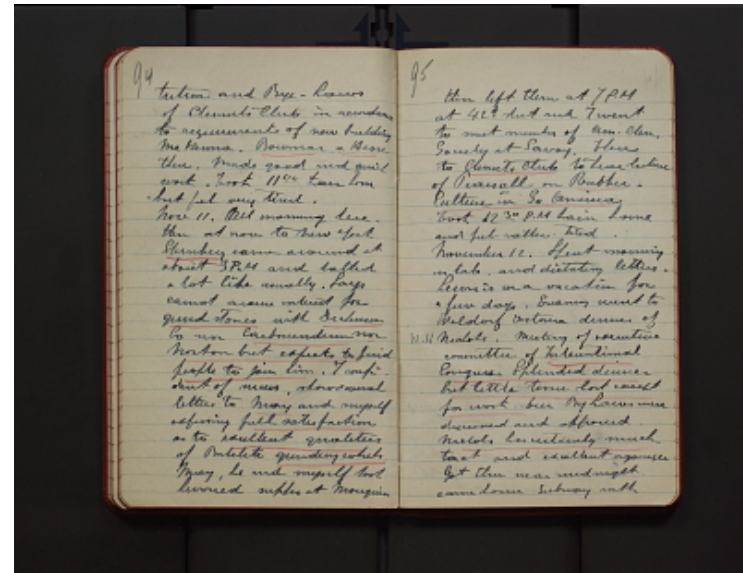 94
tution and Bye-Laws
of Chemists Club in accordance
to requirements of new building
McKenna. Bowman a Hesse
there. Made good and quick
work. Took 11 train home
but felt very tired.
Nov 11. All morning here.
then at noon to New York
Steinberg came around at
about 3 P.M and talked
a lot like usually. Says
cannot arouse interest for
grind stones with
Co nor Carborundum nor
Norton but expects to find
people to join him. I
of showed several
letters to May and myself
expressing full satisfaction
as to excellent qualities
of Bakelite grinding wheels
May, he and myself took
hurried supper at Mouquin
95
then left them at 7 P.M
at 42d and I went
to meet member of Am. Chem.
Society at Savoy. Then
to Chemists Club to hear lecture
of Pearsall on Rubber-
Culture in So America
Took 12 30 P.M train home
and felt rather tired.
November 12. Spent morning
in lab. and dictating letters.
is on a vacation for
a few days. Evening went to
Waldorf Astoria dinner of
Nichols. Meeting of executive
committee of International
Congress Splendid dinner
but little time lost except
for work. Bye Laws were
discussed and approved.
Nichols has certainly much
tact and excellent
Got thru near midnight
came home Subway with